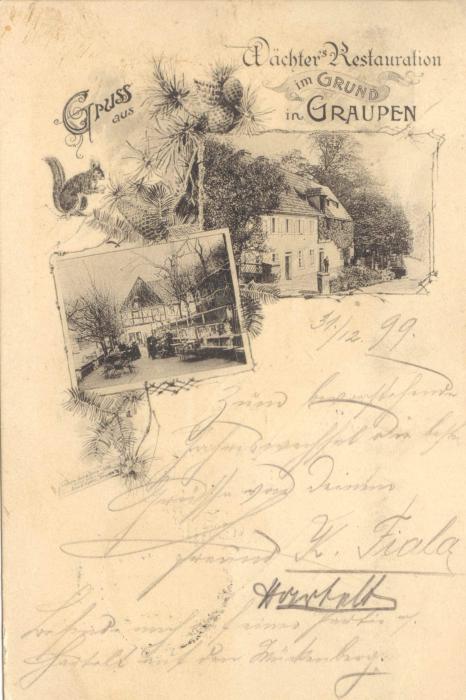 Gruss
aus
Wächter's Restauration
im GRUND
in GRAUPEN
31/12. 99.
Zum bevorstehende
Jahreswechsel die besten
Grüsse von deinem
Freund K. Fiala
Hartelt
Befinde mich auf einer Partie
Hartelt auf den Mückenberg.